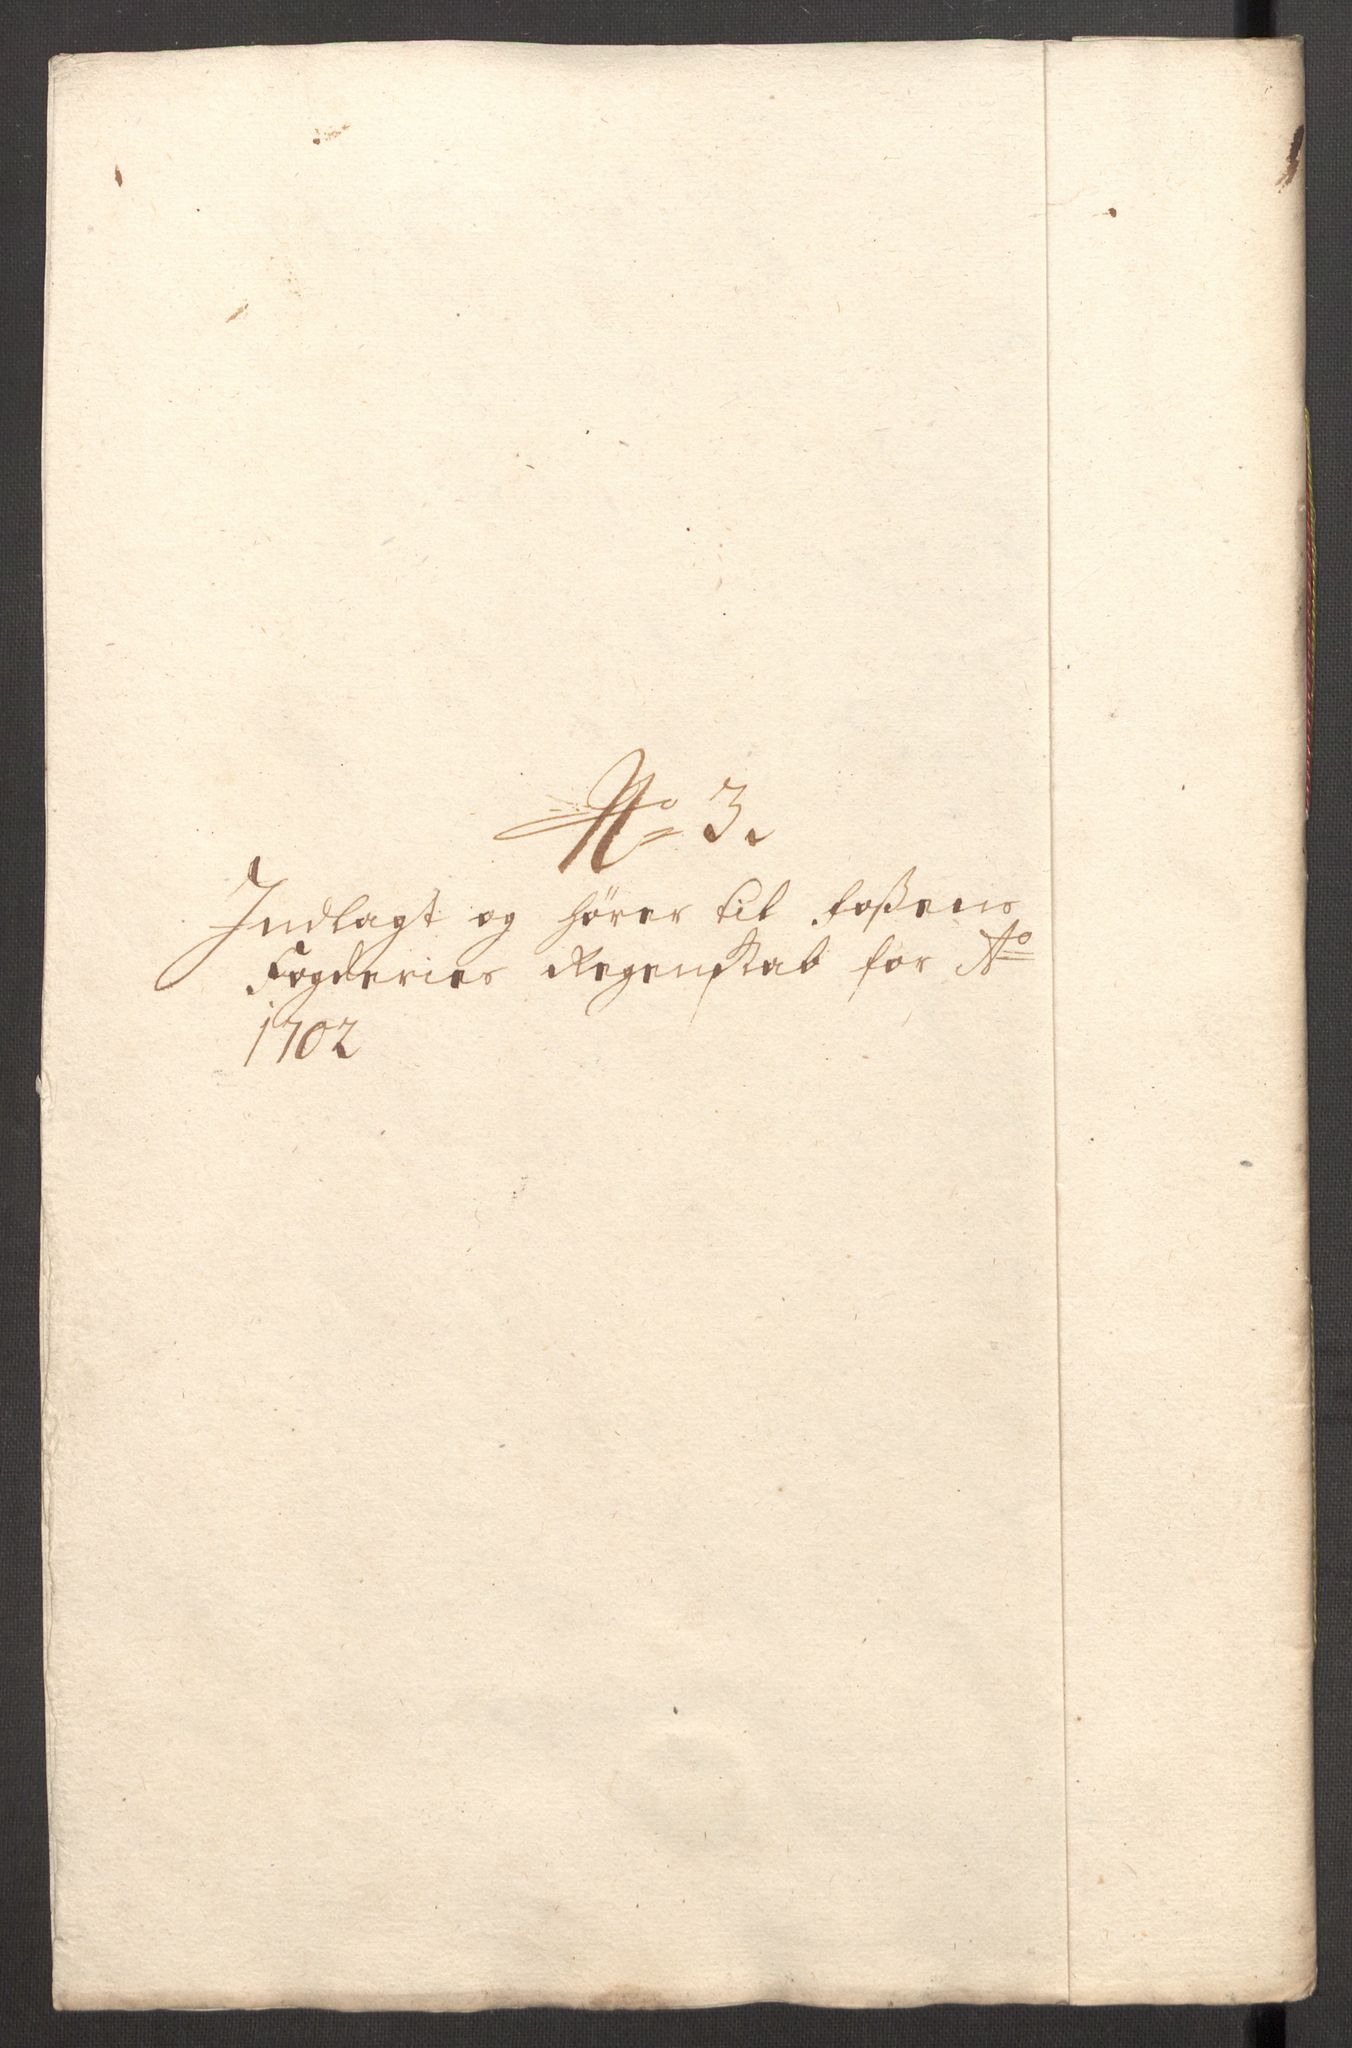 No 3.
Indlagt og hører til foßens
Fogderies Regenskab for Ao
1702